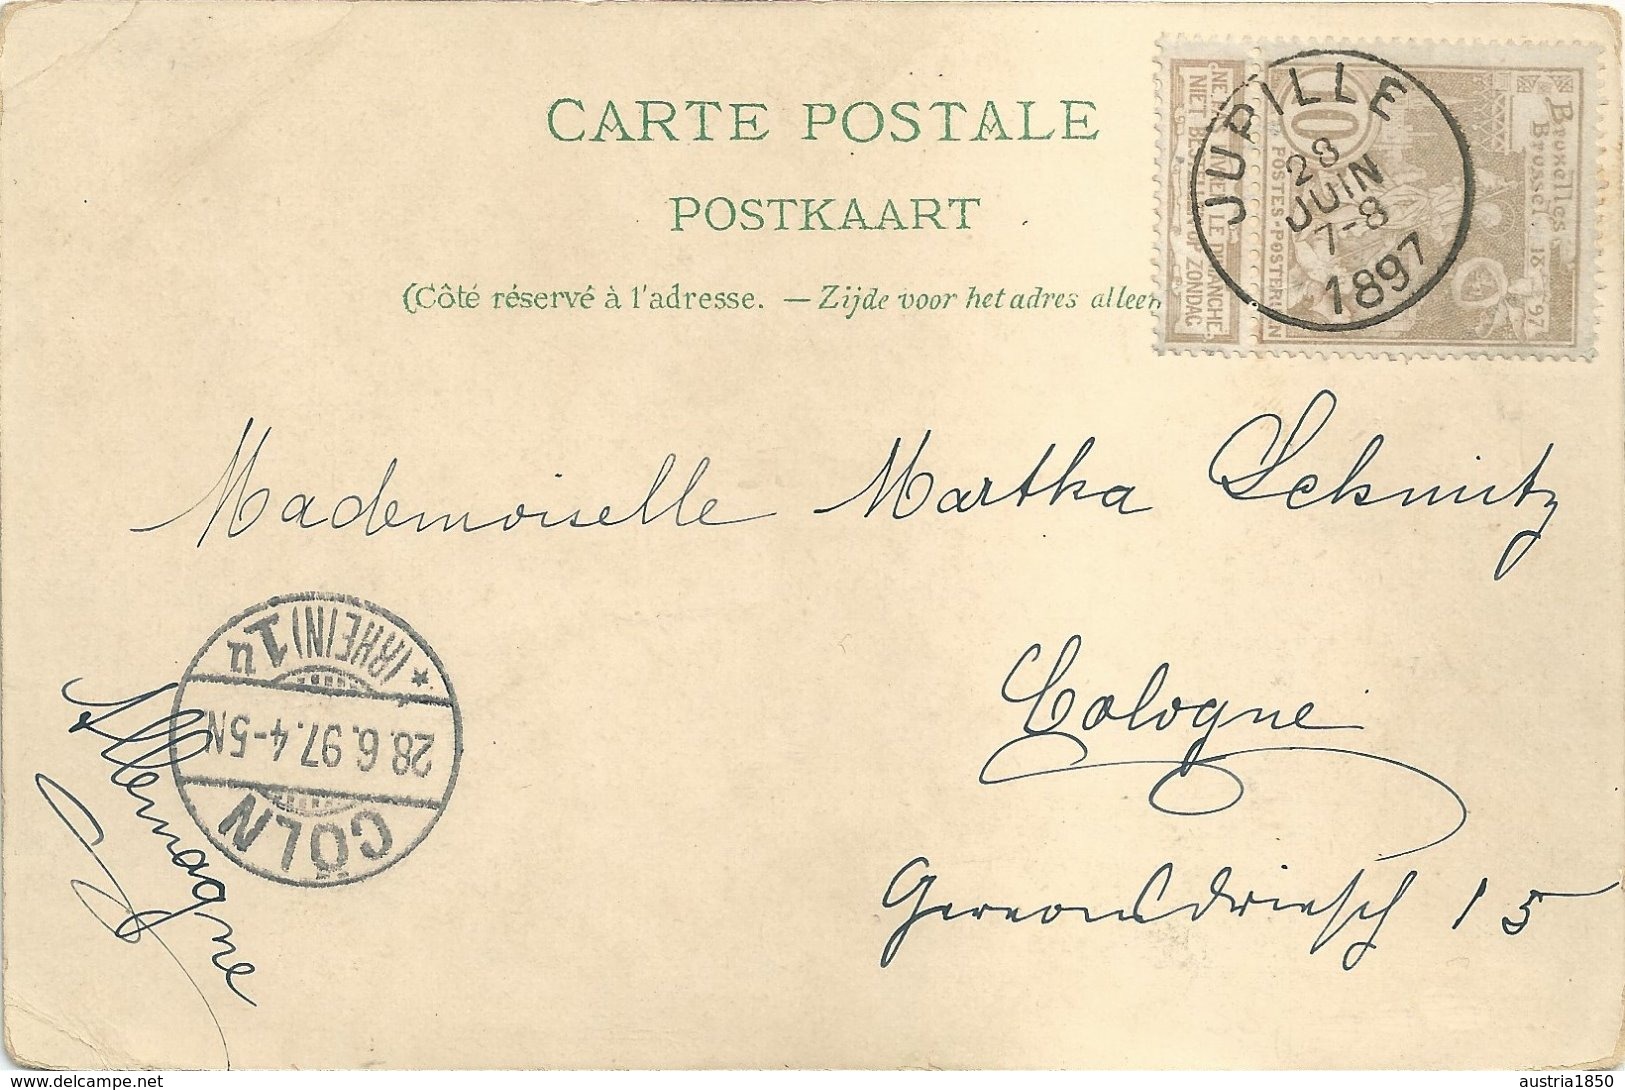 CARTE POSTALE
POSTKAART
(Côté réservé à l'adresse. — Zijde voor het adres alleen
NIET BESTELLEN OP ZONDAG
10
POSTES · POSTERIJEN
Bruxelles
Brussel. 1897
JUPILLE
28
JUIN
7-8
1897
Mademoiselle Martha Schmitz
Cologne
Gereonsdriesch 15
Allemagne
CÖLN
28.6.97.4-5N
* (RHEIN) 1u
www.delcampe.net
austria1850